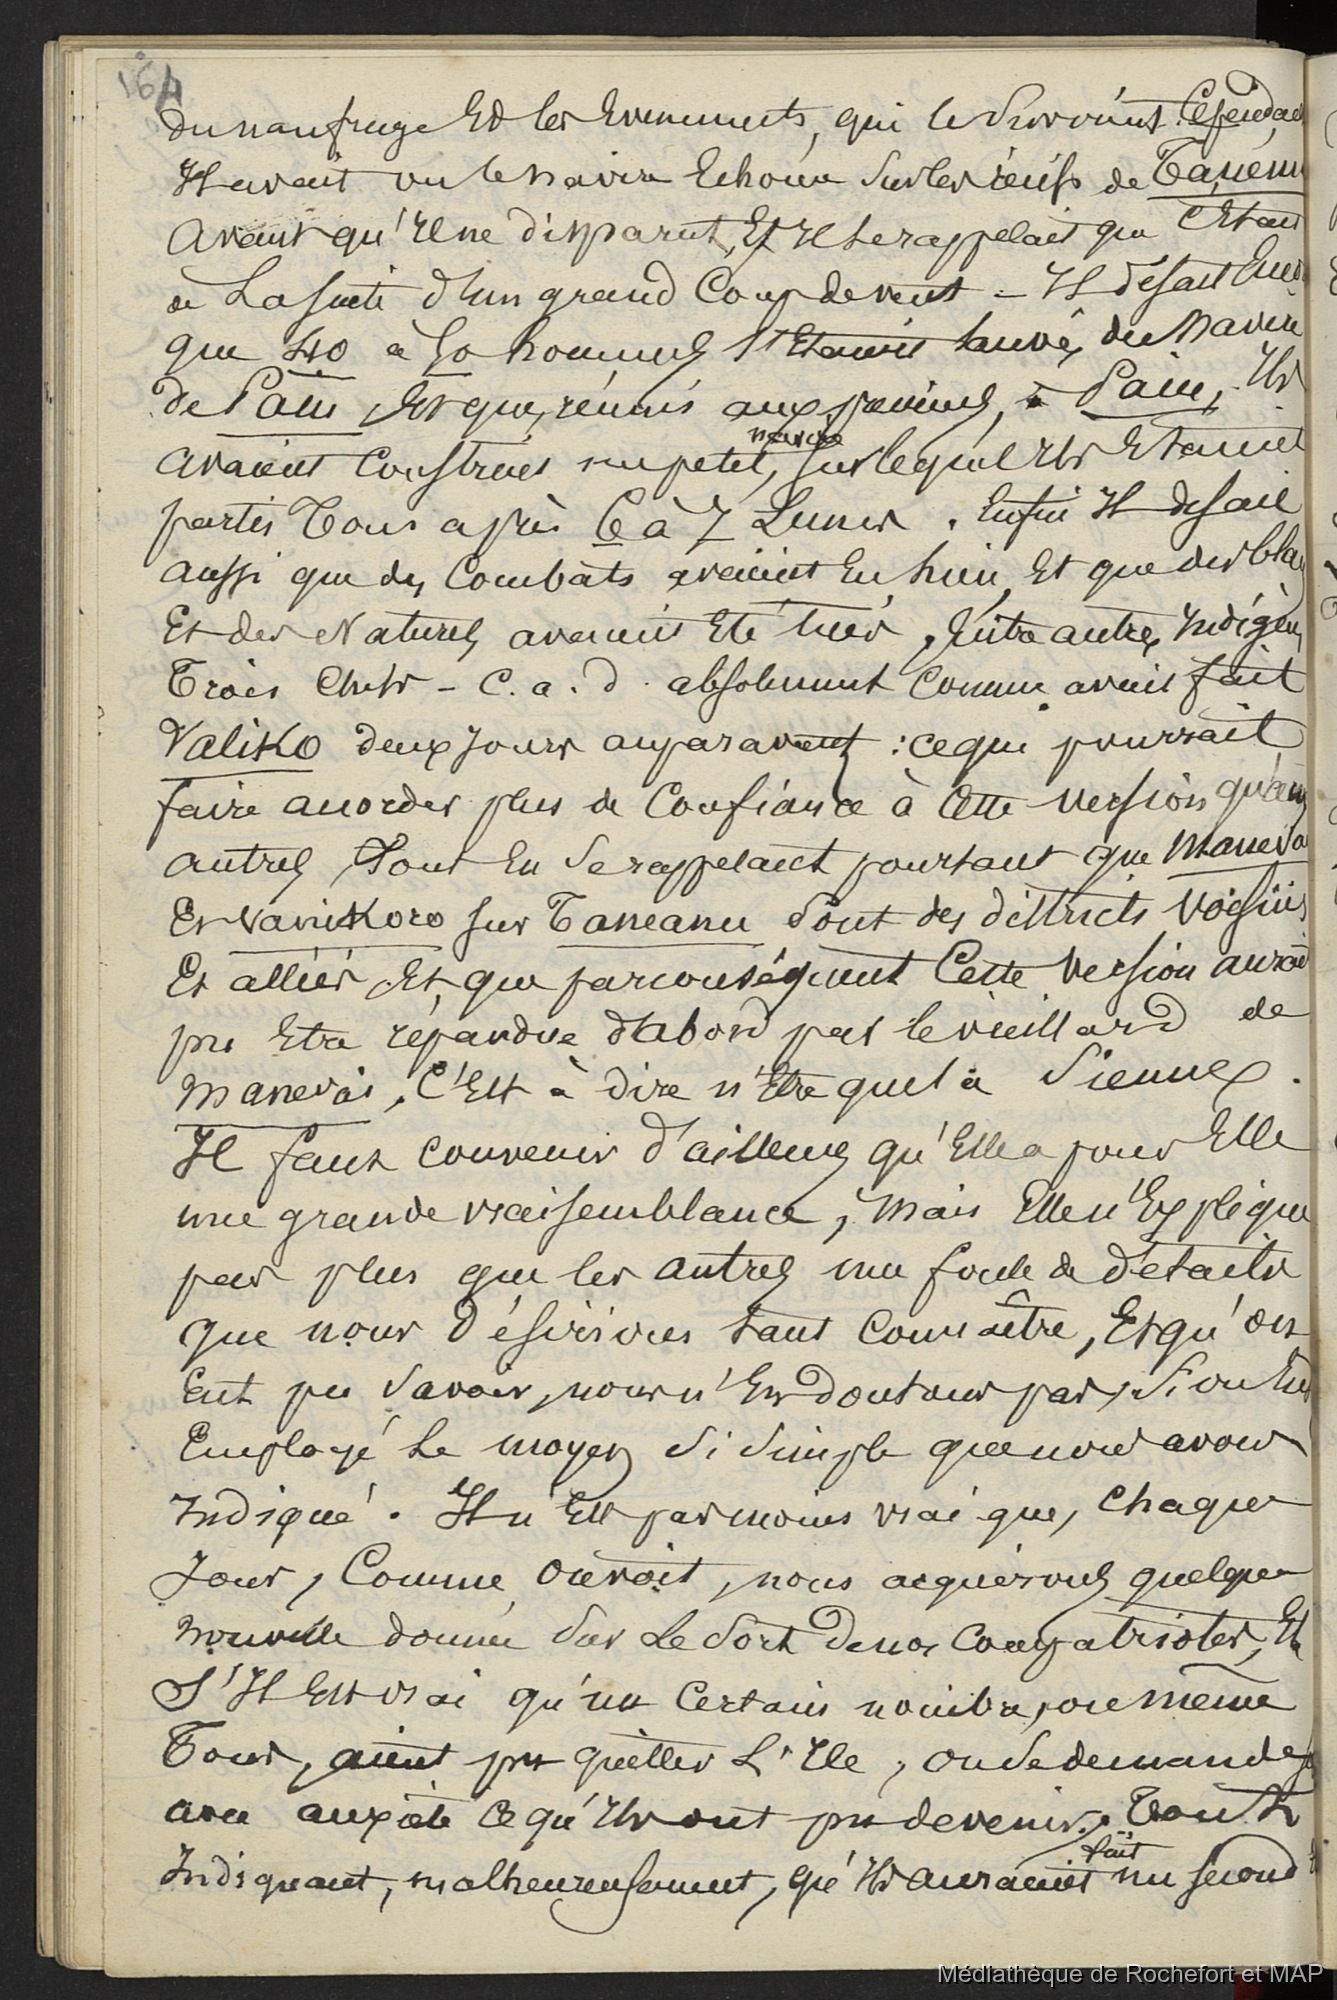 164
du naufrage Et les Evenements, qui le suivirent. Cependant
Il avait vu le navire Echouer sur les récifs de Tanema
avant qu'Il ne disparut, Et Il se rappelait que C'était
à La suite d'un grand Coup de vent - Il disait
que 40 à 50 hommes s'Etaient sauvés du Navire
de Païou Et que, réunis aux premiers, à Païou, Ils
avaient Construit un petit navire, sur lequel Ils Etaient
partis Tous après 6 à 7 Lunes. Enfin Il disait
aussi que des Combats avaient Eu lieu, Et que des blancs
Et des Naturels avaient Eté tués, Entre autres Indigènes
Trois Chefs - C. a. d. absolument Comme avait fait
Valiko deux jours auparavant : ce qui pourrait
faire accorder plus de Confiance à Cette version qu'aux
autres, Tout En se rappelant pourtant que Manevai
Et Vanikoro sur Taneanu sont des districts voisins
Et alliés, Et que par conséquent Cette version aurait
pu Etre répandue d'abord par le vieillard de
Manevai, C'Est à dire n'Etre que la Sienne.
Il faut convenir d'ailleurs qu'Elle a pour Elle
une grande vraisemblance, Mais Elle n'Explique
pas plus que les autres une foule de détails
que nous désirions tant Connaître, Et qu'on
Eut pu savoir, nous n'En doutons pas, si on Eut
Employé le moyen si simple que nous avons
Indiqué. Il n'Est pas moins vrai que, Chaque
Jour, Comme On voit, nous acquérons quelque
Nouvelle donnée Sur Le Sort de nos Compatriotes, Et
S'Il Est vrai qu'un Certain nombre, ou même
Tous, aient pu quitter L'Ile, on se demande
avec anxiété Ce qu'Ils ont pu devenir. Tout
Indiquant, malheureusement, qu'Ils auraient fait un second
Médiathèque de Rochefort et MAP